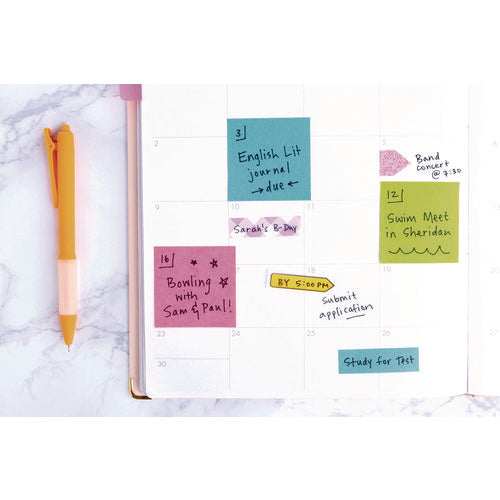 3
English Lit
journal
→due←
2
5
Band
concert
@ 7:30
12
Swim Meet
in Sheridan
9
10
11
Sarah's B-Day
16
Bowling
with
Sam & Paul!
17
18
19
BY 5:00PM
Submit
application
23
24
25
26
Study for Test
30